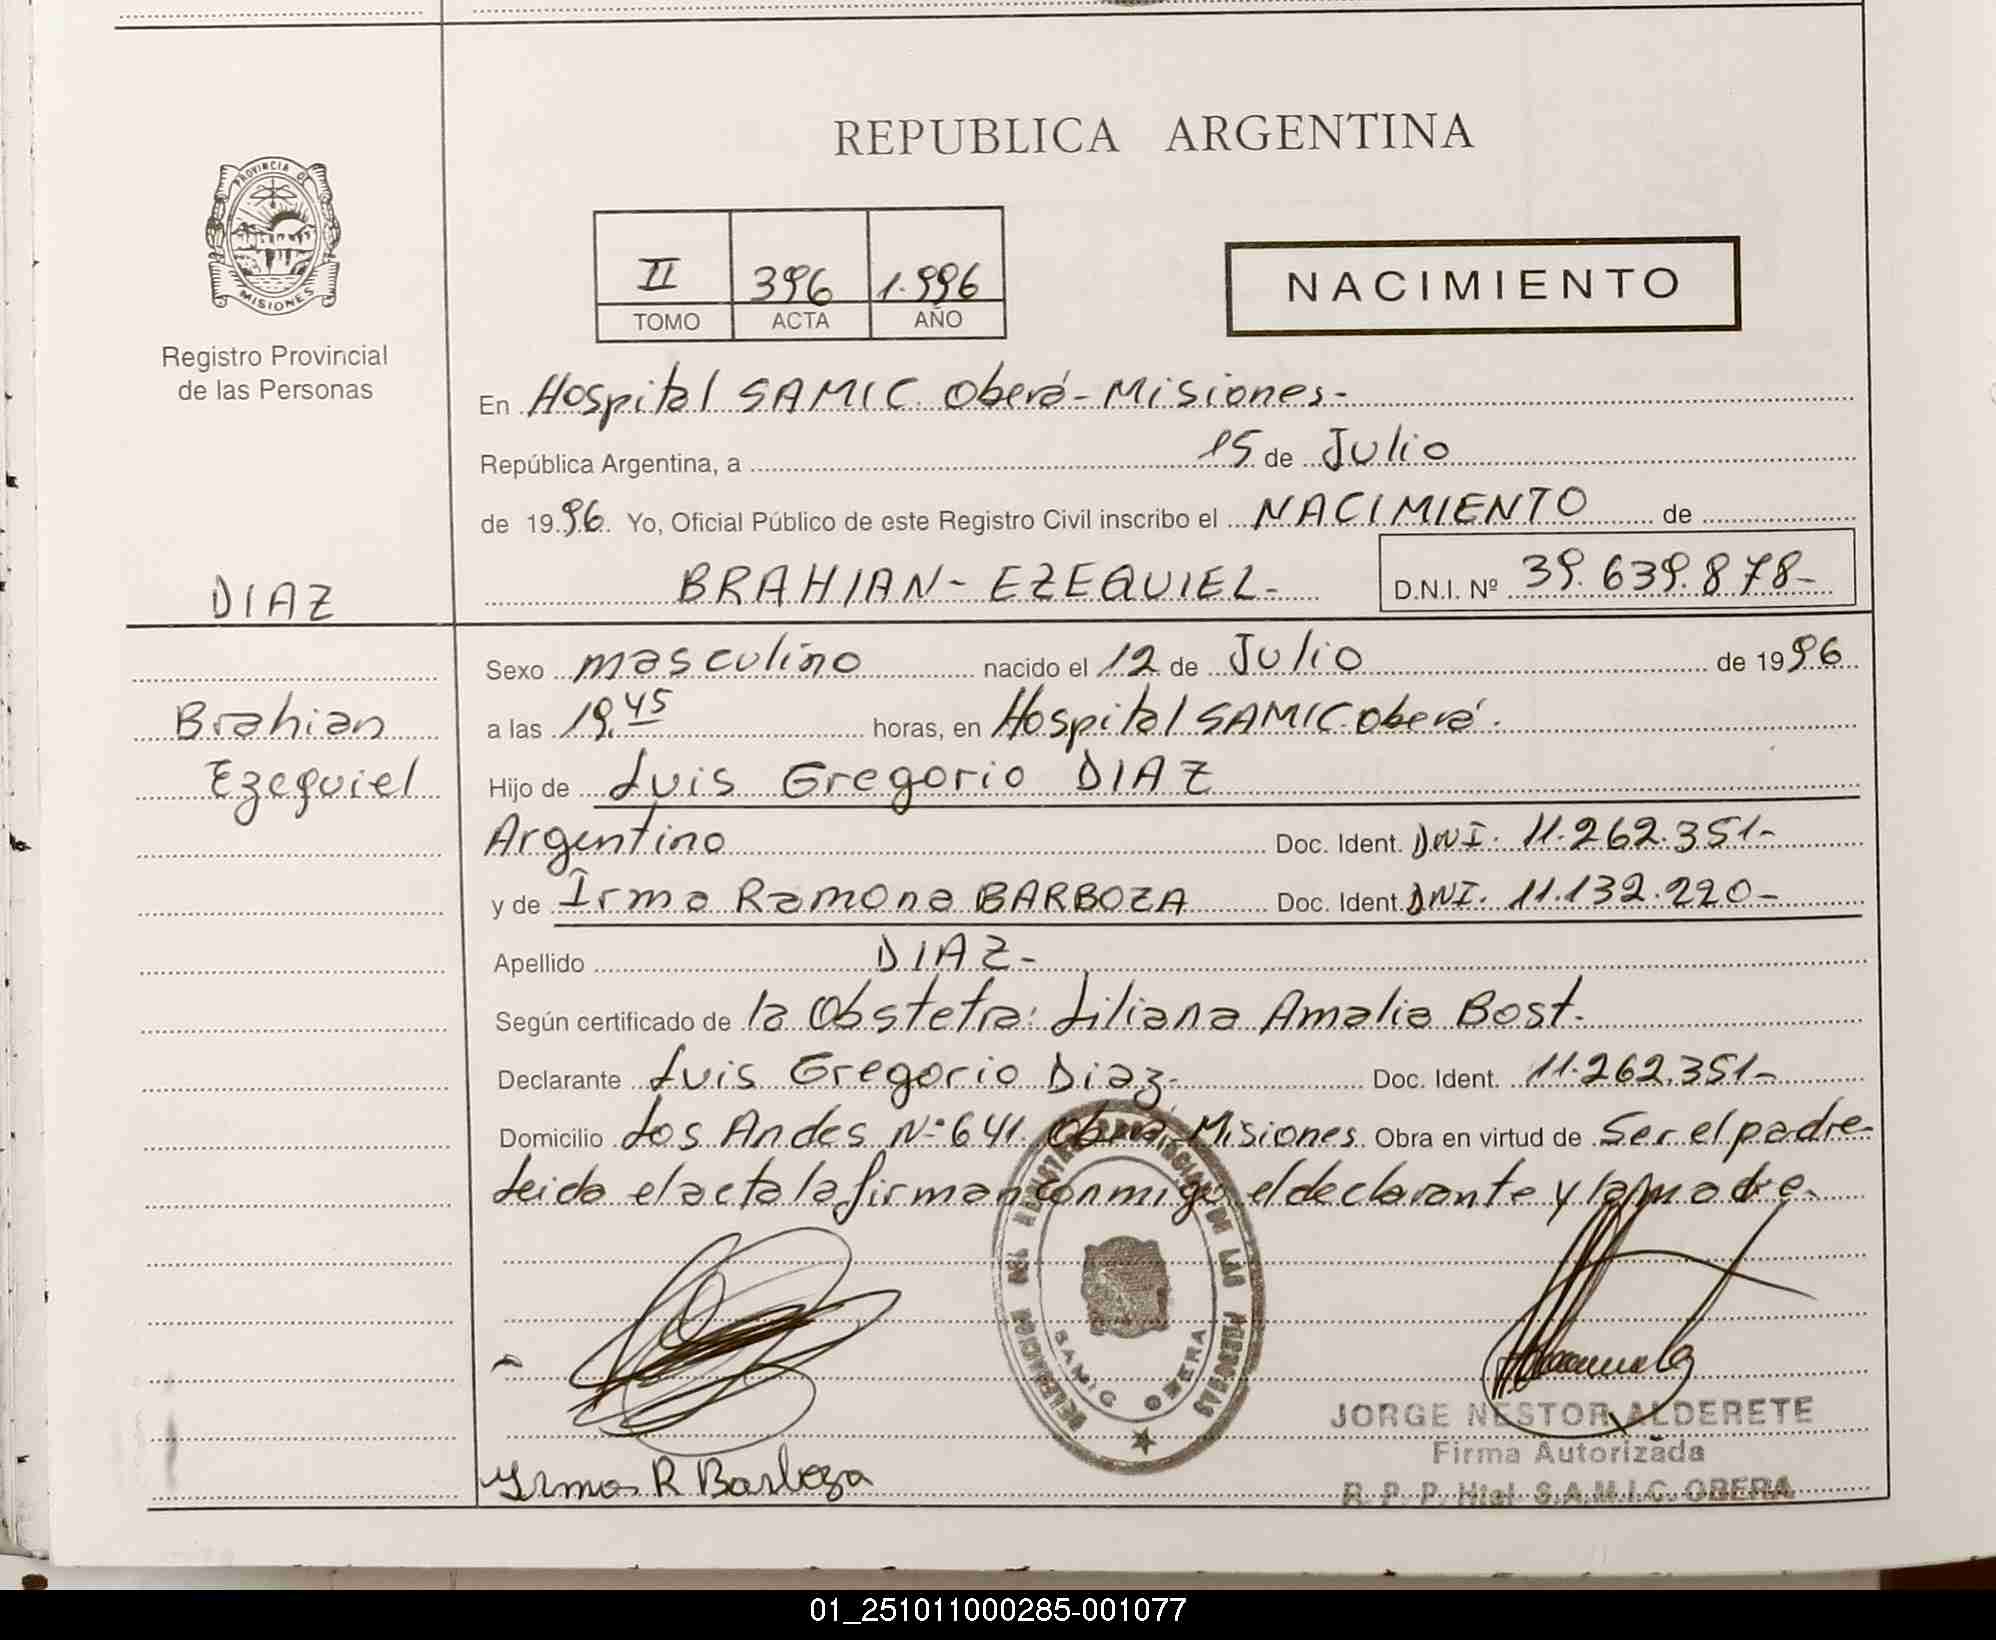 REPUBLICA ARGENTINA
PROVINCIA DE
MISIONES
Registro Provincial
de las Personas
II 396 1.996
TOMO ACTA AÑO
NACIMIENTO
En Hospital SAMIC. Oberá - Misiones -
República Argentina, a 15 de Julio
de 1996. Yo, Oficial Público de este Registro Civil inscribo el NACIMIENTO de
BRAHIAN - EZEQUIEL - D.N.I. Nº 39.639.878-
DIAZ
Brahian
Ezequiel
Sexo masculino nacido el 12 de Julio de 1996
a las 19,45 horas, en Hospital SAMIC. Oberá.
Hijo de Luis Gregorio DIAZ
Argentino Doc. Ident. DNI. 11.262.351-
y de Irma Ramona BARBOZA Doc. Ident. DNI. 11.132.220-
Apellido DIAZ -
Según certificado de la Obstetra: Liliana Amalia Bost.
Declarante Luis Gregorio Diaz - Doc. Ident. 11.262.351-
Domicilio Los Andes Nº 641. Oberá, Misiones. Obra en virtud de Ser el padre.
Leida el acta la firman conmigo el declarante y la madre.
DELEGACION DEL REGISTRO PROVINCIAL DE LAS PERSONAS
SAMIC OBERA
Irma R Barboza
JORGE NESTOR ALDERETE
Firma Autorizada
R. P. P. Htal S.A.M.I.C. OBERA
01_251011000285-001077